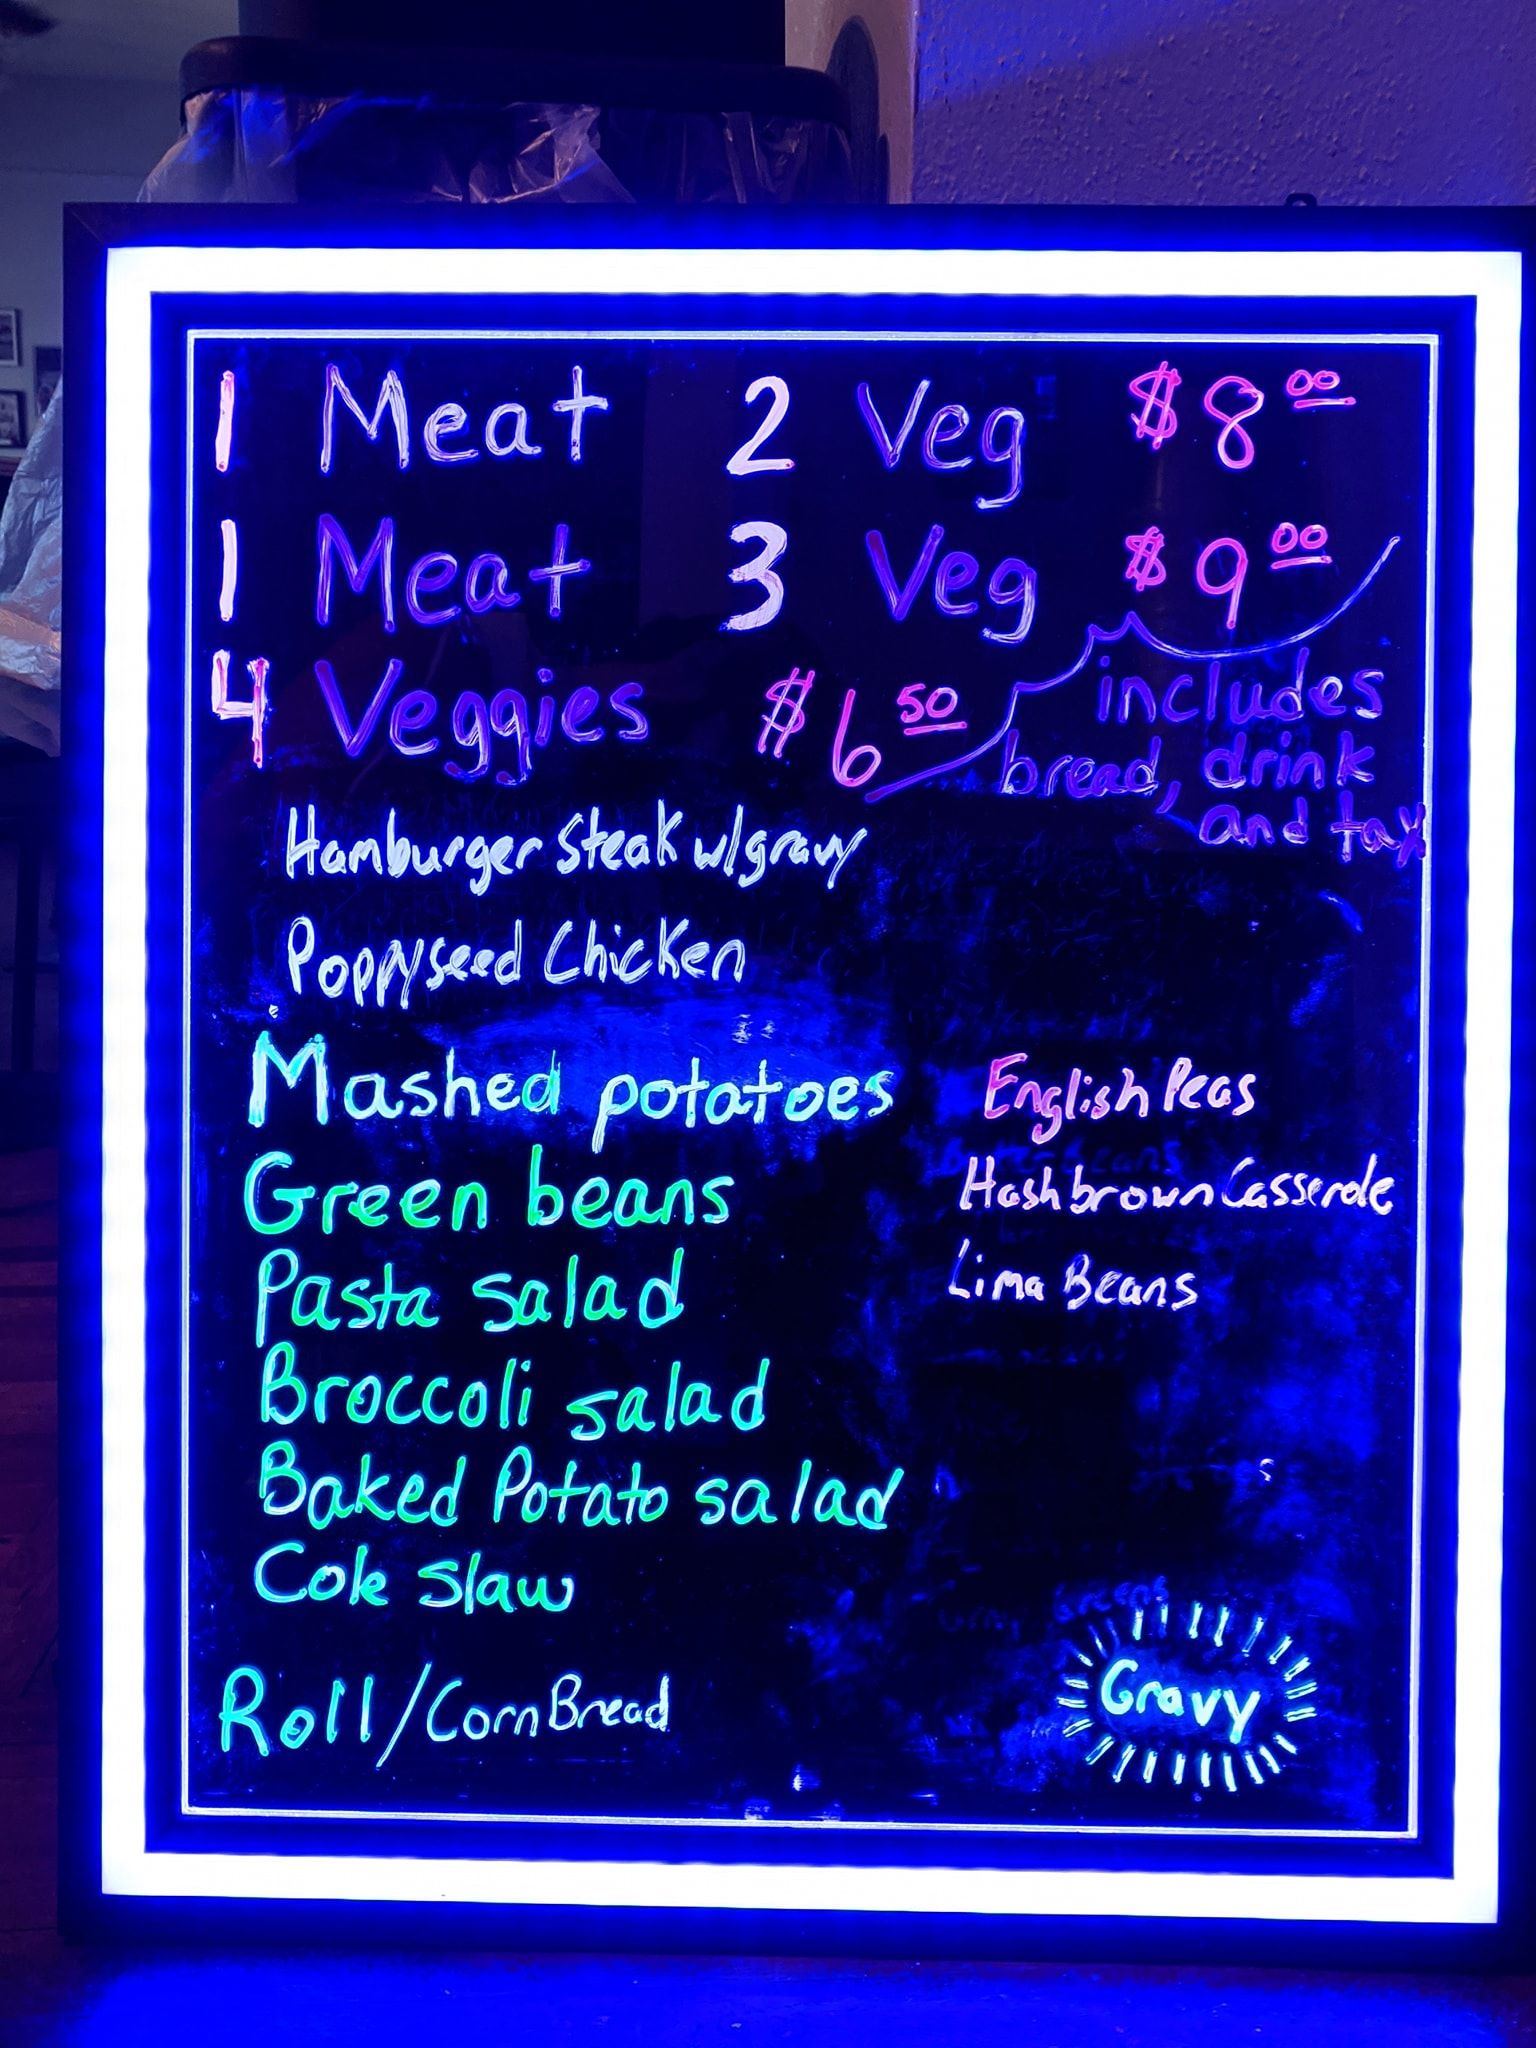 1 Meat 2 Veg $8.00
1 Meat 3 Veg $9.00
4 Veggies $6.50
includes
bread, drink
and tax
Hamburger Steak w/gravy
Poppyseed Chicken
Mashed potatoes
Green beans
Pasta salad
Broccoli salad
Baked Potato salad
Cole slaw
English Peas
Hashbrown Casserole
Lima Beans
Roll/CornBread
Gravy